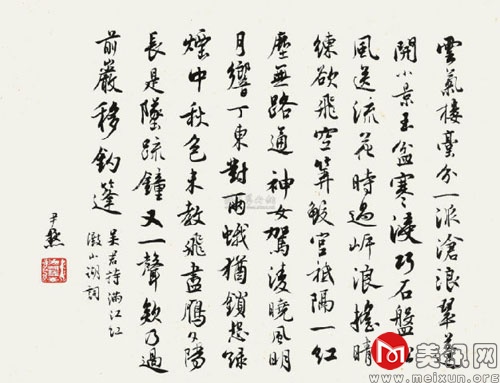 雲氣樓臺分一派滄浪翠蓬
開小景玉盆寒浸巧石盤松
風送流花時過岸浪搖晴
練欲飛空算鮫宮祗隔一紅
塵無路通神女駕淩曉風明
月響丁東對兩蛾猶鎖怨綠
煙中秋色未教飛盡鴈夕陽
長是墜疏鐘又一聲欸乃過
前巖移釣篷
吳君特滿江紅
澱山湖詞
尹默
美讯网
www.meixun.org